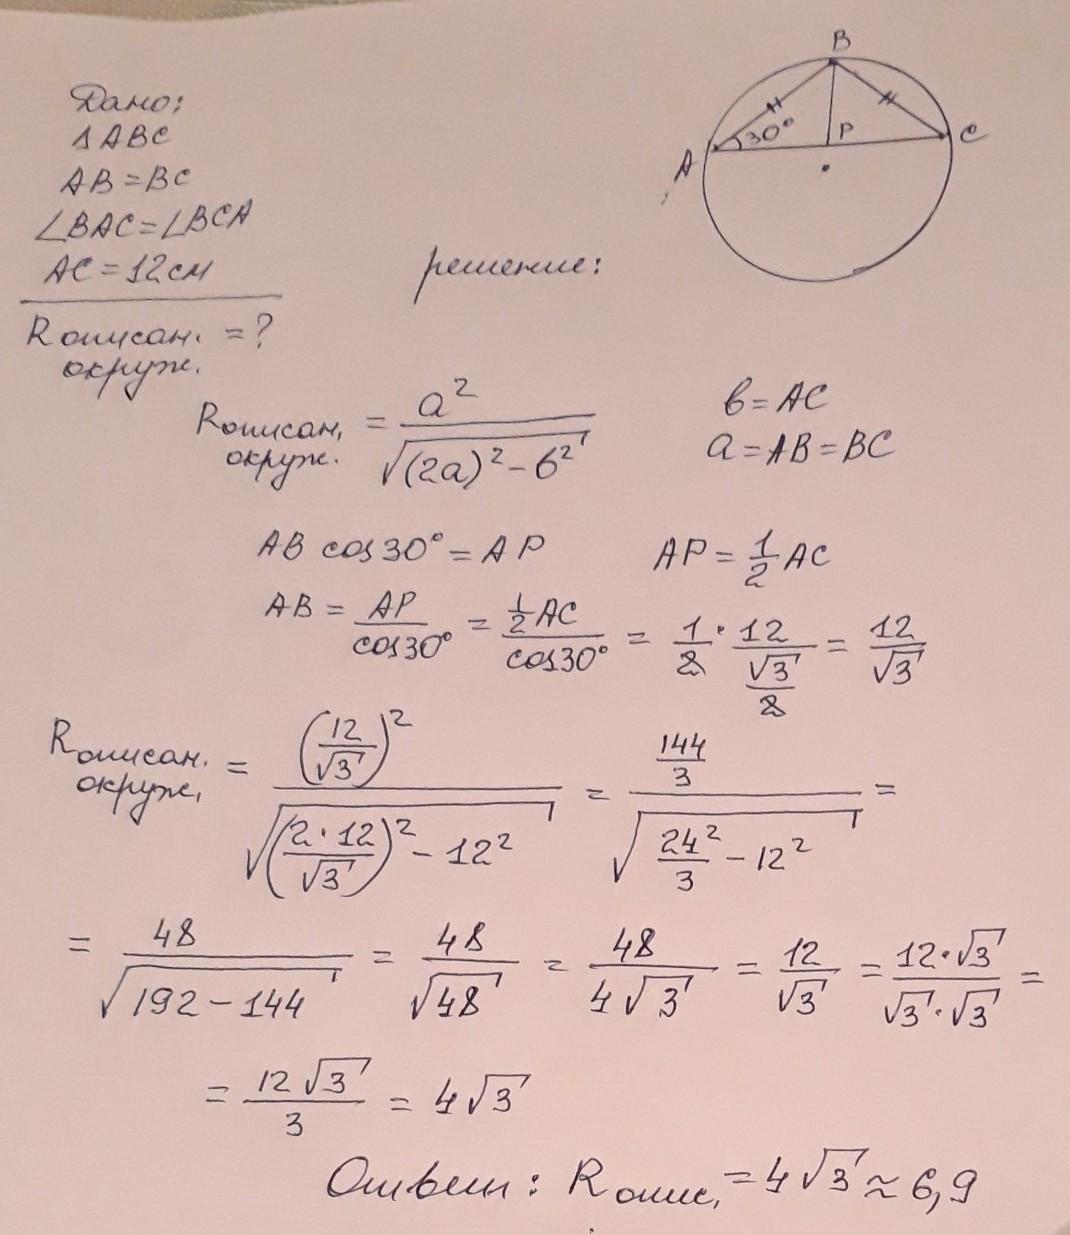 Дано:
△ABC
AB=BC
∠BAC=∠BCA
AC=12см
Rописан. = ?
окруж.
B
A 30° P C
решение:
Rописан. окруж. = a²/√((2a)²-b²)
b=AC
a=AB=BC
AB cos30°=AP AP=1/2 AC
AB = AP/cos30° = (1/2 AC)/cos30° = 1/2 · 12/(√3/2) = 12/√3
Rописан. окруж. = (12/√3)²/√((2·12/√3)²-12²) = (144/3)/√(24²/3-12²) =
= 48/√(192-144) = 48/√48 = 48/(4√3) = 12/√3 = (12·√3)/(√3·√3) =
= 12√3/3 = 4√3
Ответ: Rопис. = 4√3 ≈ 6,9